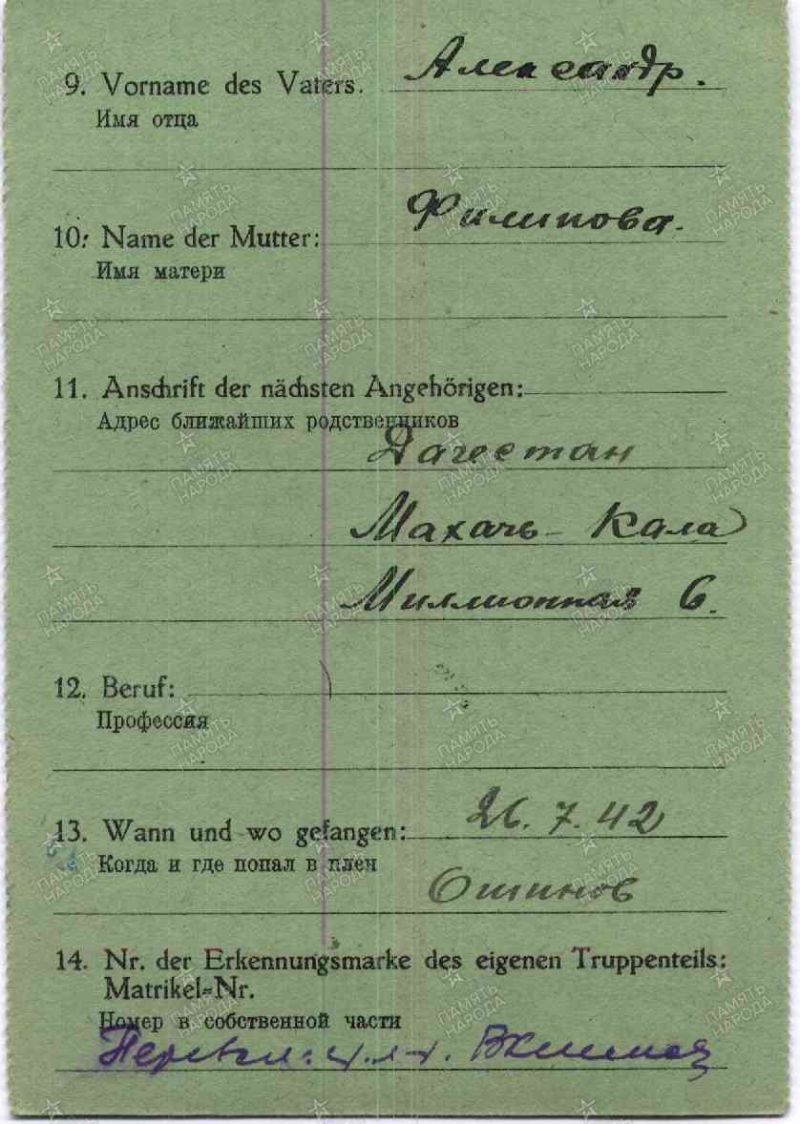 9. Vorname des Vaters. Александр.
Имя отца
10. Name der Mutter: Филипова.
Имя матери
11. Anschrift der nächsten Angehörigen:
Адрес ближайших родственников
Дагестан
Махачь-Кала
Миллионная 6.
12. Beruf:
Профессия
13. Wann und wo gefangen: 26.7.42
Когда и где попал в плен
14. Nr. der Erkennungsmarke des eigenen Truppenteils:
Matrikel-Nr.
Номер в собственной части
ПАМЯТЬ
НАРОДА